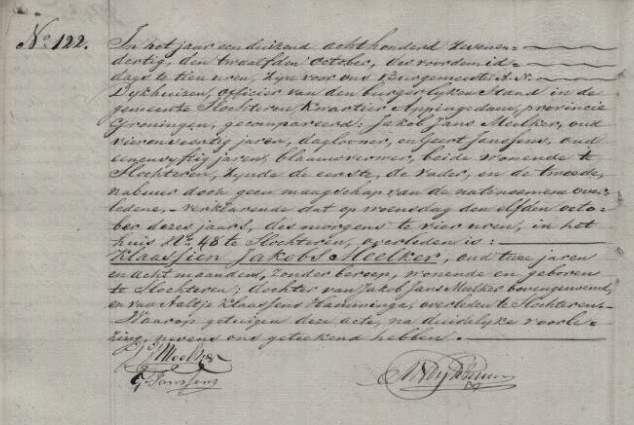 No 122.
In het jaar een duizend acht honderd zeven en
dertig, den twaalfden October, des voordemid
dags te tien uren, zijn voor ons Burgemeester A. N.
Dijkhuizen, Officier van den burgerlyken Stand in de
gemeente Slochteren, Kwartier Appingedam, provincie
Groningen, gecompareerd: Jakob Jans Meelker, oud
vierenveertig jaren, daglooner, en Geert Janssens, oud
eenenvyftig jaren, blaauwverwer, beide wonende te
Slochteren, zynde de eerste, de vader, en de tweede,
nabuur doch geen maagschap van de natenoemene over-
ledene, verklarende dat op woensdag den elfden octo-
ber dezes jaars, des morgens te vier uren, in het
huis No. 48 te Slochteren, overleden is:
Klaassien Jakobs Meelker, oud twee jaren
en acht maanden, zonder beroep, wonende en geboren
te Slochteren; dochter van Jakob Jans Meelker bovengenoemd,
en van Aaltje Klaassens Hamminga, overleden te Slochteren.
Waarop getuigen deze acte, na duidelyke voorle-
zing, nevens ons geteekend hebben.
J J Meelker
G Janssens